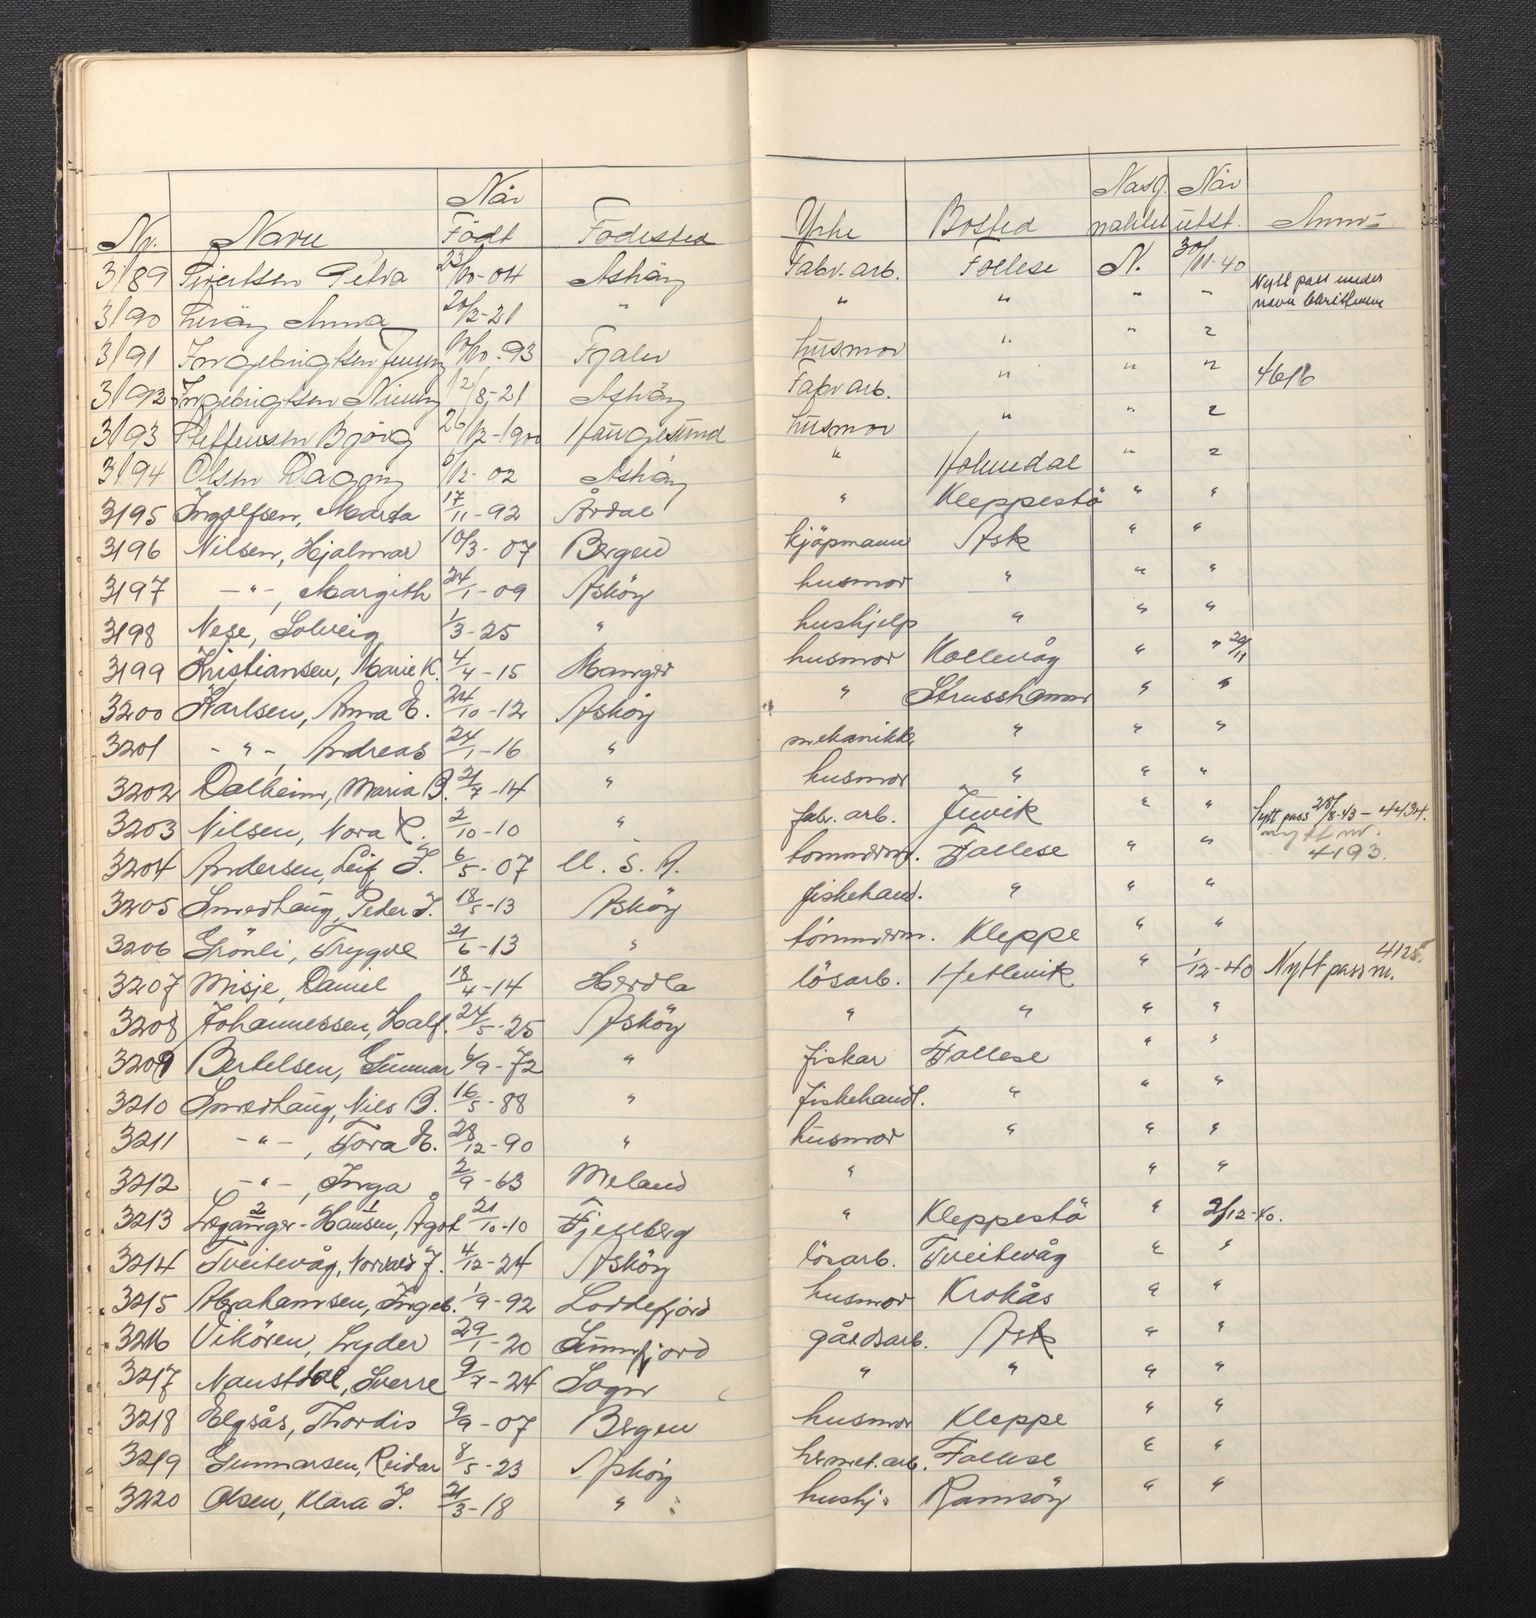 Nr. Navn Når Födt Födested Yrke Bosted Nasj. nalitet Når utst. Anm.
3189 Sivertsen Petra 23/10-04 Asköy Fabr.arb. Follese N. 30/11-40
3190 Anna 20/2-21 " " " " " Nytt pass under navn
3191 Ingebrigtsen Jenny 10/10-93 Fjaler husmor " " "
3192 Ingebrigtsen 12/8-21 Asköy Fabr arb. " " " 4616
3193 Steffensen Björg 26/12-1900 Haugesund husmor " " "
3194 Olsen Dagny /12-02 Asköy " Holmedal " "
3195 Ingolfsen, Marta 17/11-92 Årdal " Kleppestö " "
3196 Nilsen, Hjalmar 10/3-07 Bergen kjöpmann Ask " "
3197 -"-, Margith 24/1-09 Asköy husmor " " "
3198 Nese, Solveig 1/3-25 " hushjelp " " "
3199 Kristiansen, Marie K. 4/4-15 Manger husmor Kollevåg " " 29/11
3200 Karlsen, Anna E. 24/10-12 Asköy " Strusshamn " "
3201 -"-, Andreas 24/1-16 " mekanikk. " " "
3202 Dalheim, Maria B. 21/7-14 " husmor " " "
3203 Nilsen, Nora C. 2/10-10 " fabr. arb. Juvik " " Nytt pass 28/8-43 - 4434.
3204 Andersen, Leif I. 6/5-07 U. S. A. tömmerm. Follese " " nytt nr. 4193.
3205 Smedhaug, Peder I. 18/5-13 Asköy fiskehand. " " "
3206 Grönli, Trygve 21/6-13 " tömmerm. Kleppe " "
3207 Misje, Daniel 18/4-14 Herdla lösarb. Hetlevik " 1/12-40 Nytt pass nr. 4125.
3208 Johannessen, Half. 24/5-25 Asköy " " " "
3209 Bertelsen, Gunnar 6/9-72 " fisker Follese " "
3210 Smedhaug, Nils B. 16/5-88 " fiskehandl. " " "
3211 -"-, Tora E. 28/12-90 " husmor " " "
3212 -"-, Inga 2/9-63 Meland " " "
3213 Leganger-Hansen, Ågot 21/10-10 Fjellberg " Kleppestö " 2/12-40.
3214 Tveitevåg, Norvald J. 4/12-24 Asköy lösarb. Tveitevåg " "
3215 Abrahamsen, Ingeb. 1/9-92 Loddefjord husmor Krokås " "
3216 Vikören, Lyder 29/1-20 Sunnfjord gårdsarb. Ask " "
3217 Naustdal, Sverre 9/7-24 Sogn " " " "
3218 Elgsås, Thordis 9/9-07 Bergen husmor Kleppe " "
3219 Gunnarsen, Reidar 8/5-23 Asköy hermet.arb. Follese " "
3220 Olsen, Klara I. 21/3-18 " hushj. Ramsöy " "